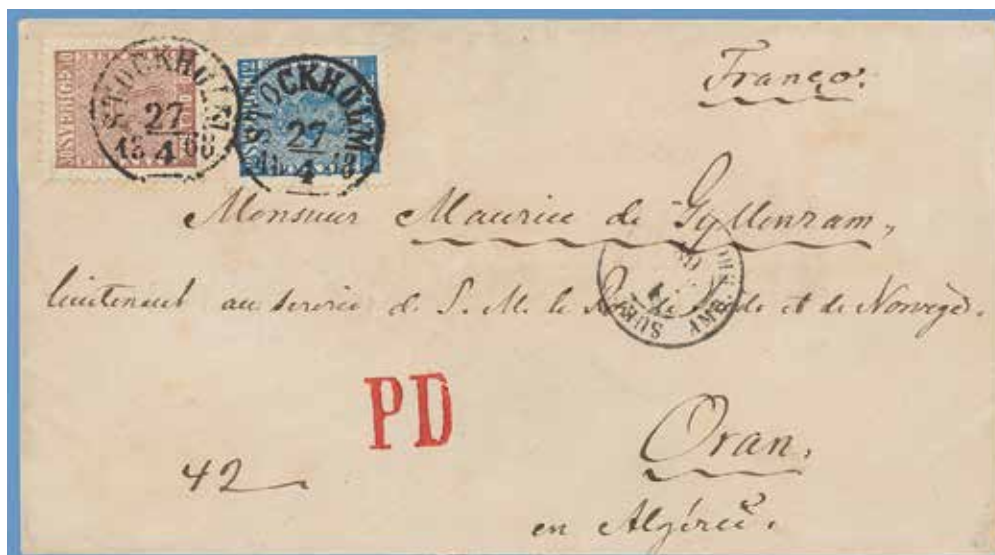 STOCKHOLM
27
4
STOCKHOLM
27
4
SVERIGE
Franco.
Monsieur Maurice de Gyllenram,
lieutenant au service de S. M. le Roi de Suède et de Norvège.
SUÈDE
PD
Oran,
42
en Algérie.